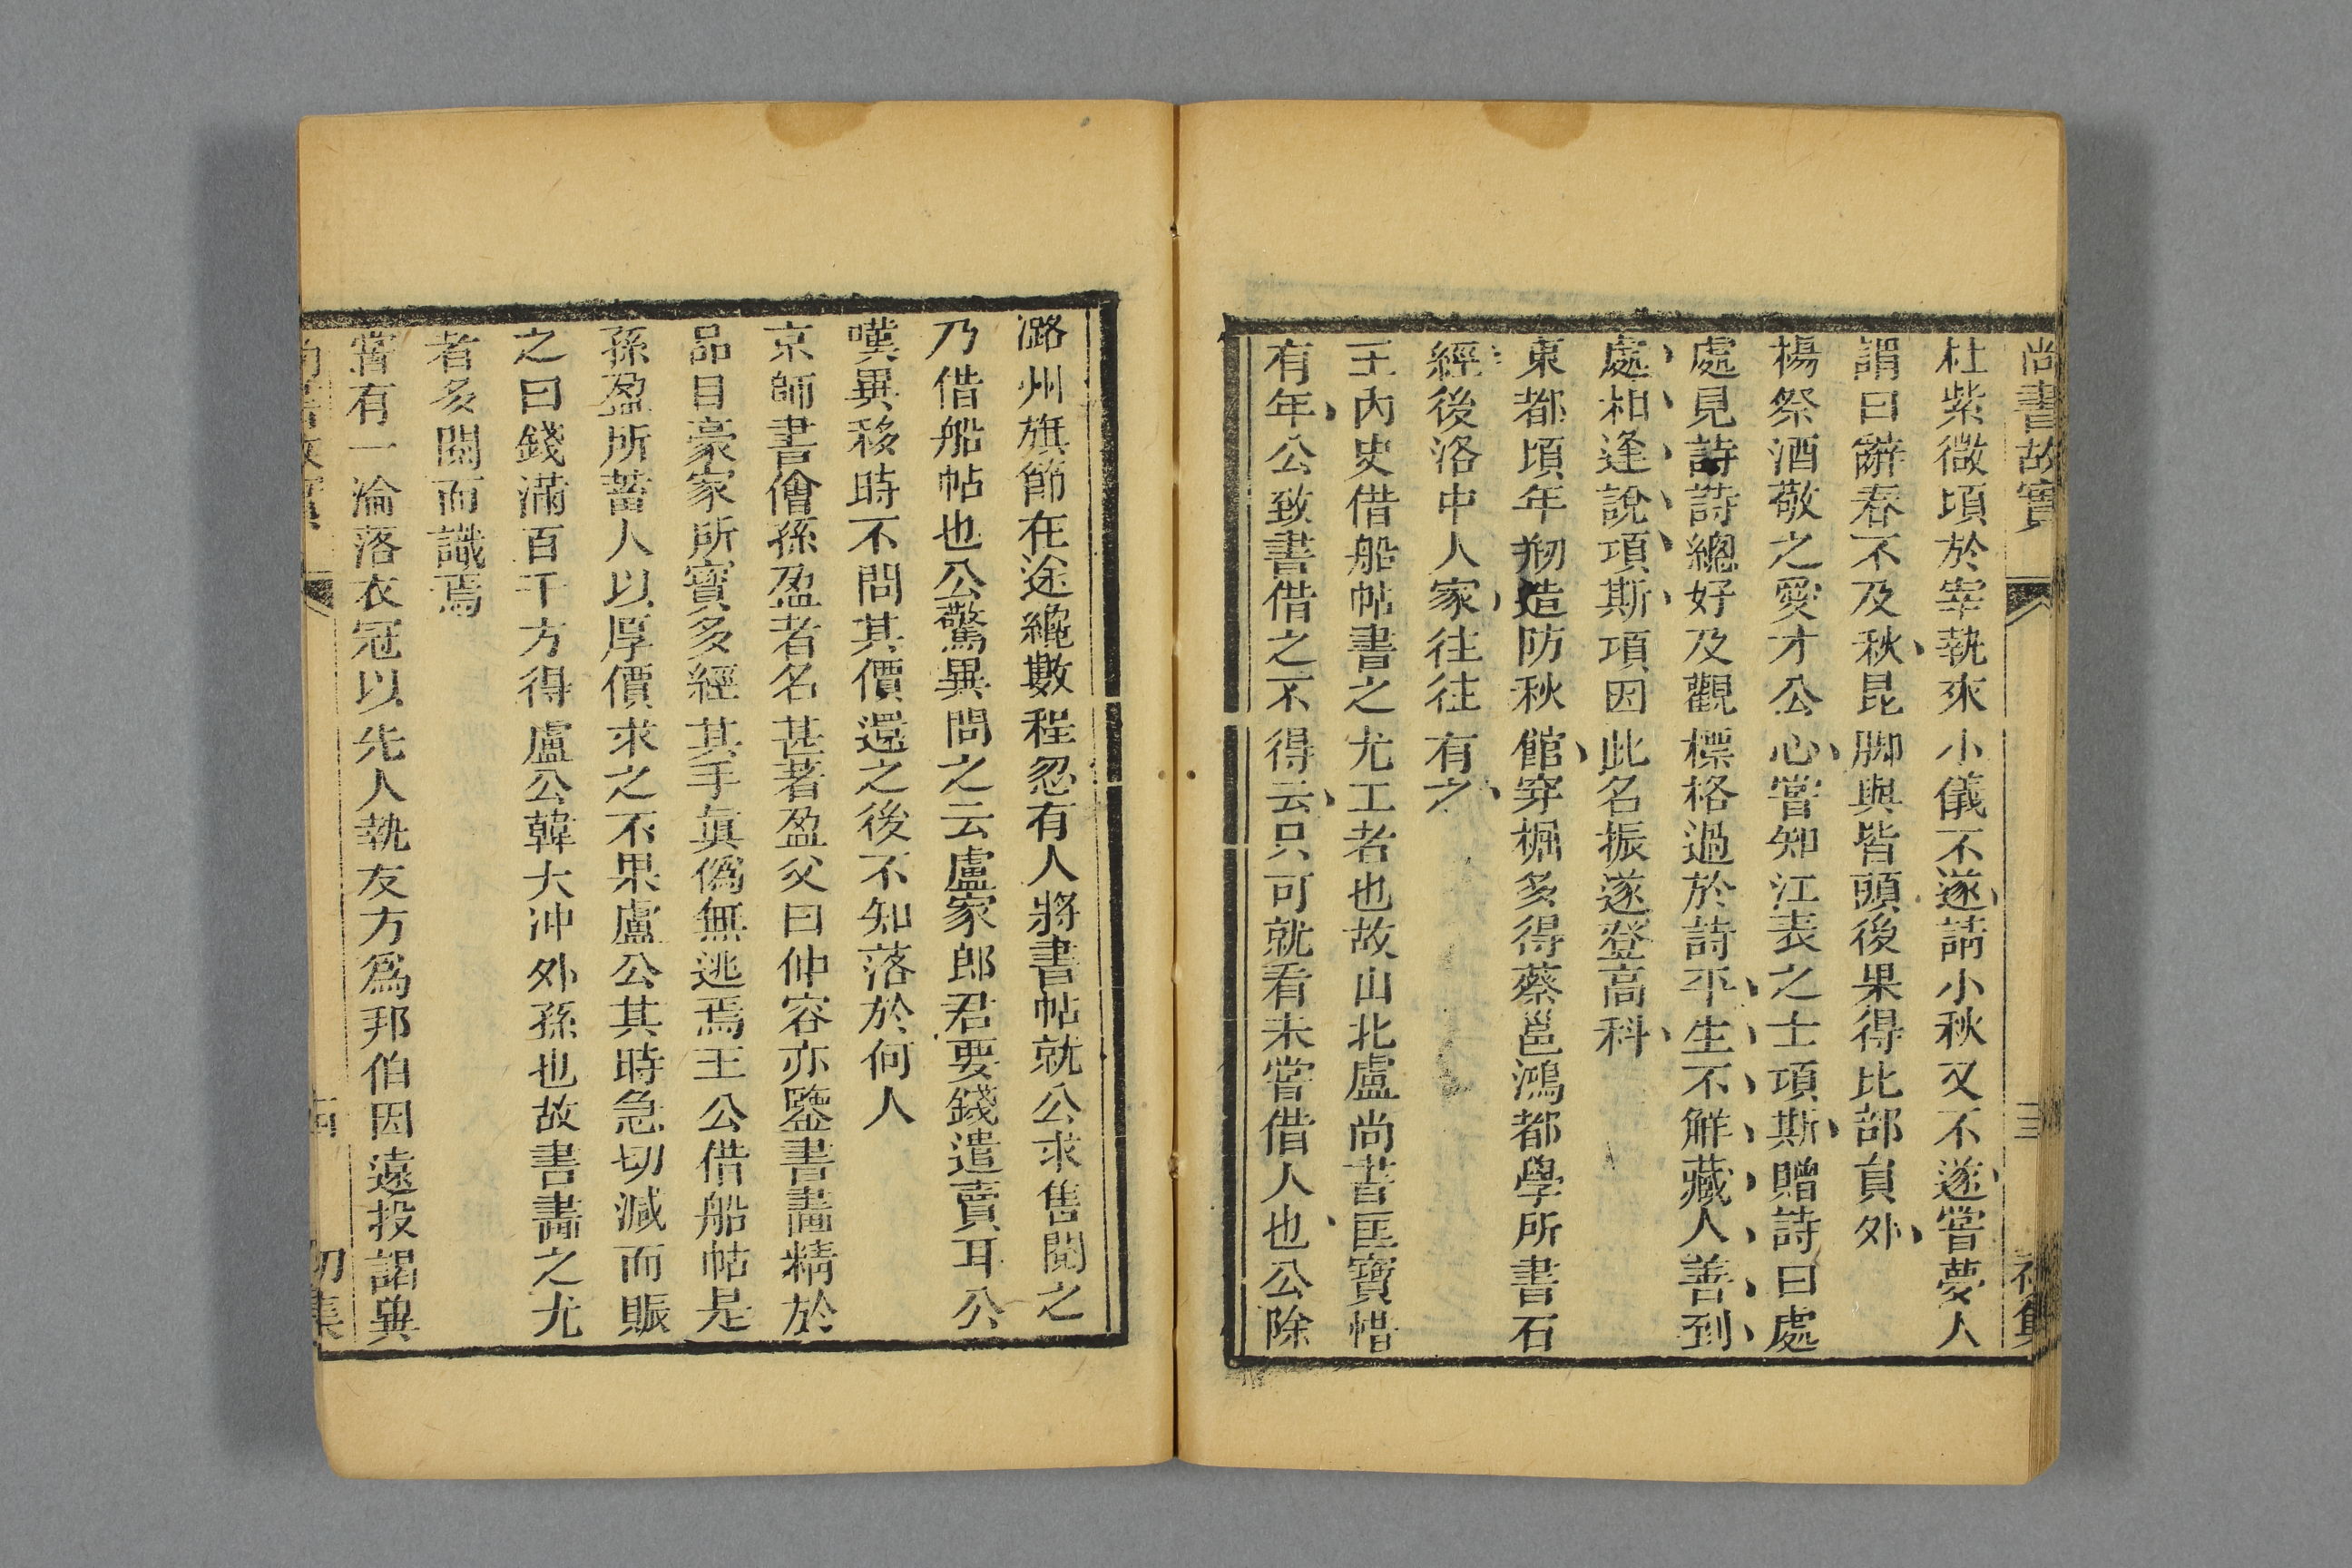 尚書故實 三 初集
杜紫微頃於宰執求小儀不遂請小秋又不遂嘗夢人
謂曰辭春不及秋昆脚與皆頭後果得比部員外
楊祭酒敬之愛才公心嘗知江表之士項斯贈詩曰處
處見詩詩總好及觀標格過於詩平生不解藏人善到
處相逢說項斯項因此名振遂登高科
東都頃年剏造防秋館穿掘多得蔡邕鴻都學所書石
經後洛中人家往往有之
王內史借船帖書之尤工者也故山北盧尚書匡寶惜
有年公致書借之不得云只可就看未嘗借人也公除
潞州旗節在途纔數程忽有人將書帖就公求售閱之
乃借船帖也公驚異問之云盧家郎君要錢遣賣耳公
嘆異移時不問其價還之後不知落於何人
京師書儈孫盈者名甚著盈父曰仲容亦鑒書畫精於
品目豪家所寶多經其手眞僞無逃焉王公借船帖是
孫盈所蓄人以厚價求之不果盧公其時急切減而賑
之曰錢滿百千方得盧公韓大冲外孫也故書畫之尤
者多閱而識焉
嘗有一淪落衣冠以先人執友方爲邦伯因遠投謁與
尚書故實 初集